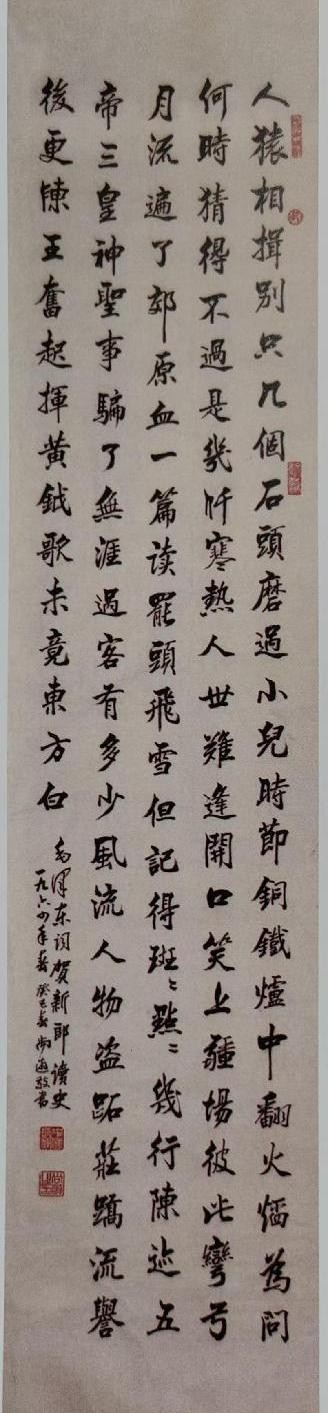 人猿相揖別只几個石頭磨過小兒時節銅鐵爐中翻火焰為問
何時猜得不過是幾仟寒熱人世難逢開口笑上疆場彼此彎弓
月流遍了郊原血一篇读罷頭飛雪但記得斑〻點〻幾行陳迹五
帝三皇神聖事騙了無涯過客有多少風流人物盜跖莊蹻流譽
後更陳王奮起揮黃鉞歌未竟東方白
毛澤東词賀新郎讀史
一九六四年春癸巳春